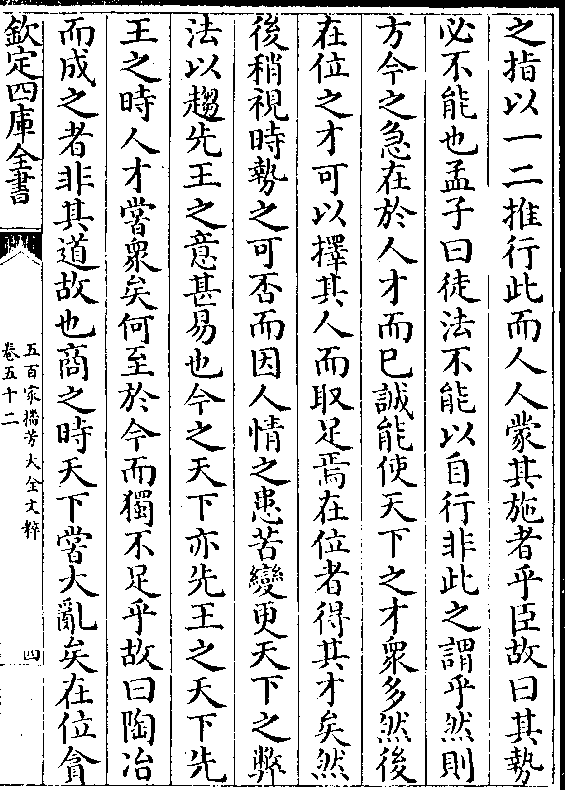 之指以一二推行此而人人蒙其施者乎臣故曰其勢
必不能也孟子曰徒法不能以自行非此之謂乎然則
方今之急在於人才而已誠能使天下之才衆多然後
在位之才可以擇其人而取足焉在位者得其才矣然
後稍視時勢之可否而因人情之患苦變更天下之弊
法以趨先王之意甚易也今之天下亦先王之天下先
王之時人才嘗衆矣何至於今而獨不足乎故曰陶冶
而成之者非其道故也商之時天下嘗大亂矣在位貪
欽定四庫全書
五百家播芳大全文粹
卷五十二
四